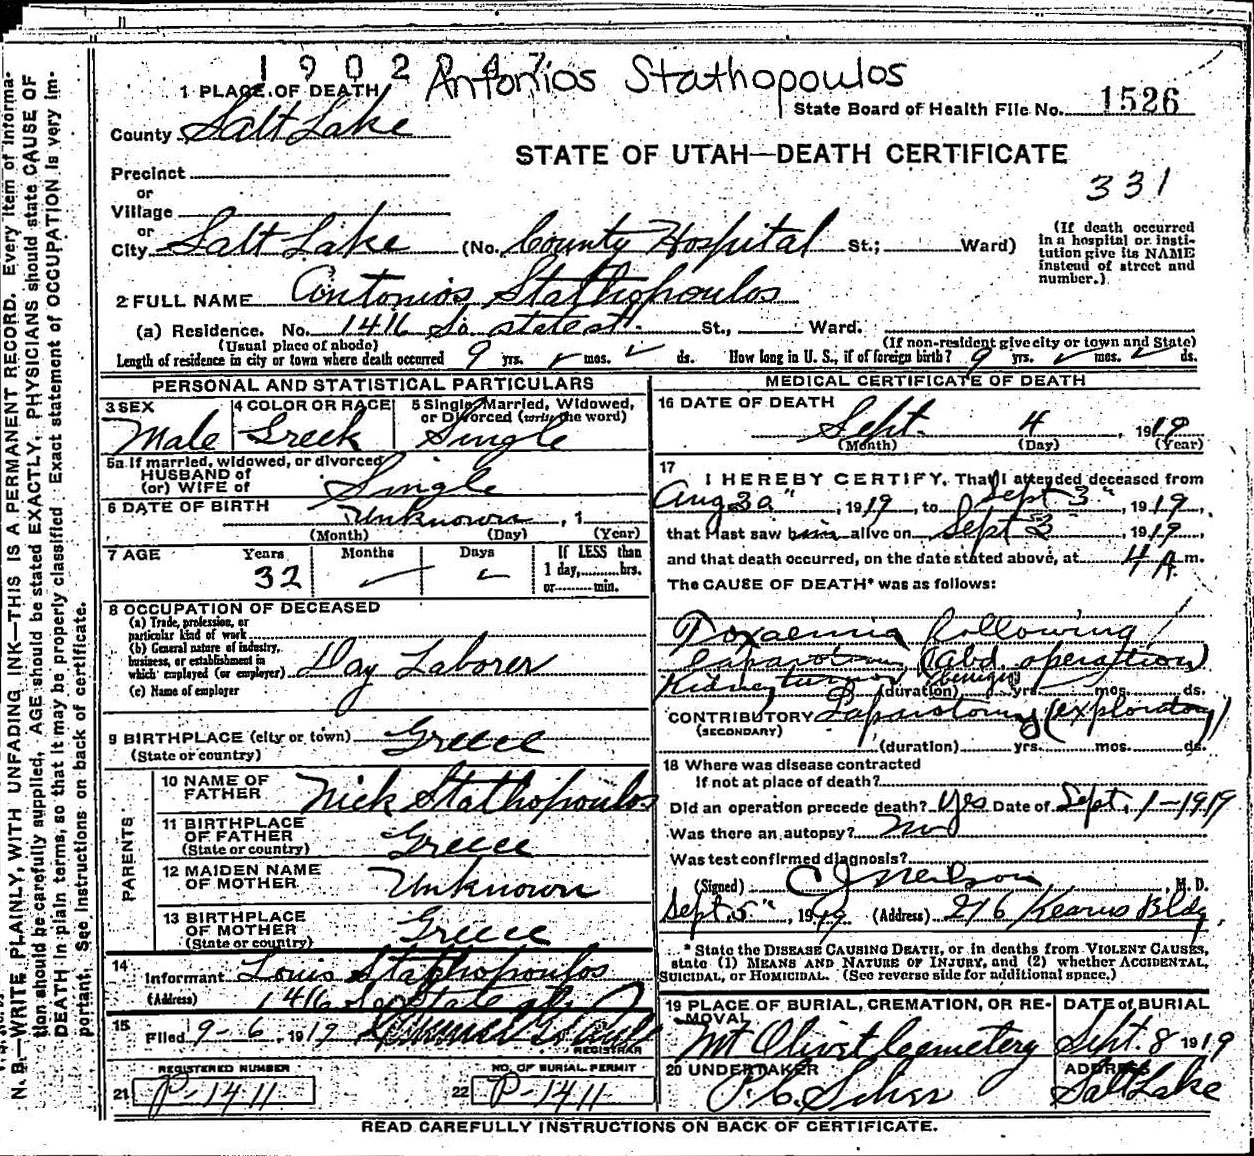 1902047 Antonios Stathopoulos
1 PLACE OF DEATH
State Board of Health File No. 1526
County Salt Lake
STATE OF UTAH—DEATH CERTIFICATE
331
Precinct
or
Village
or
City Salt Lake (No. County Hospital St.; Ward)
(If death occurred in a hospital or institution give its NAME instead of street and number.)
2 FULL NAME Antonios Stathopoulos
(a) Residence. No. 1416 So. State St. St., Ward.
(Usual place of abode) (If non-resident give city or town and State)
Length of residence in city or town where death occurred 9 yrs. mos. ds. How long in U. S., if of foreign birth? 9 yrs. mos. ds.
PERSONAL AND STATISTICAL PARTICULARS
3 SEX 4 COLOR OR RACE 5 Single, Married, Widowed, or Divorced (write the word)
Male Greek Single
5a If married, widowed, or divorced
HUSBAND of
(or) WIFE of Single
6 DATE OF BIRTH
Unknown, 1
(Month) (Day) (Year)
7 AGE Years Months Days If LESS than
32 — 1 day, hrs.
or min.
8 OCCUPATION OF DECEASED
(a) Trade, profession, or
particular kind of work
(b) General nature of industry,
business, or establishment in
which employed (or employer) Day Laborer
(c) Name of employer
9 BIRTHPLACE (city or town) Greece
(State or country)
PARENTS
10 NAME OF
FATHER Nick Stathopoulos
11 BIRTHPLACE
OF FATHER Greece
(State or country)
12 MAIDEN NAME
OF MOTHER Unknown
13 BIRTHPLACE
OF MOTHER Greece
(State or country)
14
Informant Louis Stathopoulos
(Address) 1416 So State St.
15
Filed 9-6, 1919
REGISTRAR
REGISTERED NUMBER NO. OF BURIAL PERMIT
21 P-1411 22 P-1411
MEDICAL CERTIFICATE OF DEATH
16 DATE OF DEATH
Sept. 4, 1919
(Month) (Day) (Year)
17
I HEREBY CERTIFY, That I attended deceased from
Aug 30", 1919, to Sept 3", 1919,
that I last saw him alive on Sept 3, 1919,
and that death occurred, on the date stated above, at 4 A. m.
The CAUSE OF DEATH* was as follows:
Toxaemia following
laparotomy (abd. operation)
Kidney tumor (benign)
(duration) yrs. mos. ds.
CONTRIBUTORY Laparotomy (exploratory)
(SECONDARY)
(duration) yrs. mos. ds.
18 Where was disease contracted
if not at place of death?
Did an operation precede death? Yes Date of Sept. 1-1919
Was there an autopsy? No
Was test confirmed diagnosis?
(Signed) C J Neilson, M. D.
Sept 5", 1919 (Address) 216 Kearns Bldg.
* State the DISEASE CAUSING DEATH, or in deaths from VIOLENT CAUSES,
state (1) MEANS AND NATURE OF INJURY, and (2) whether ACCIDENTAL,
SUICIDAL, or HOMICIDAL. (See reverse side for additional space.)
19 PLACE OF BURIAL, CREMATION, OR RE-
MOVAL
DATE of BURIAL
Mt Olivet Cemetery Sept. 8 1919
20 UNDERTAKER ADDRESS
Salt Lake
READ CAREFULLY INSTRUCTIONS ON BACK OF CERTIFICATE.
N. B.—WRITE PLAINLY, WITH UNFADING INK—THIS IS A PERMANENT RECORD. Every item of informa-
tion should be carefully supplied, AGE should be stated EXACTLY, PHYSICIANS should state CAUSE OF
DEATH in plain terms, so that it may be properly classified. Exact statement of OCCUPATION is very im-
portant. See instructions on back of certificate.